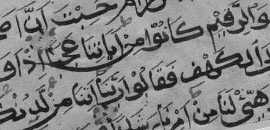 ام حسبت ان ا
والرقيم كانوا من اياتنا عجبا اذ او
الكهف فقالوا ربنا اتنا من لدنك
وهيئ لنا من امرنا رشدا